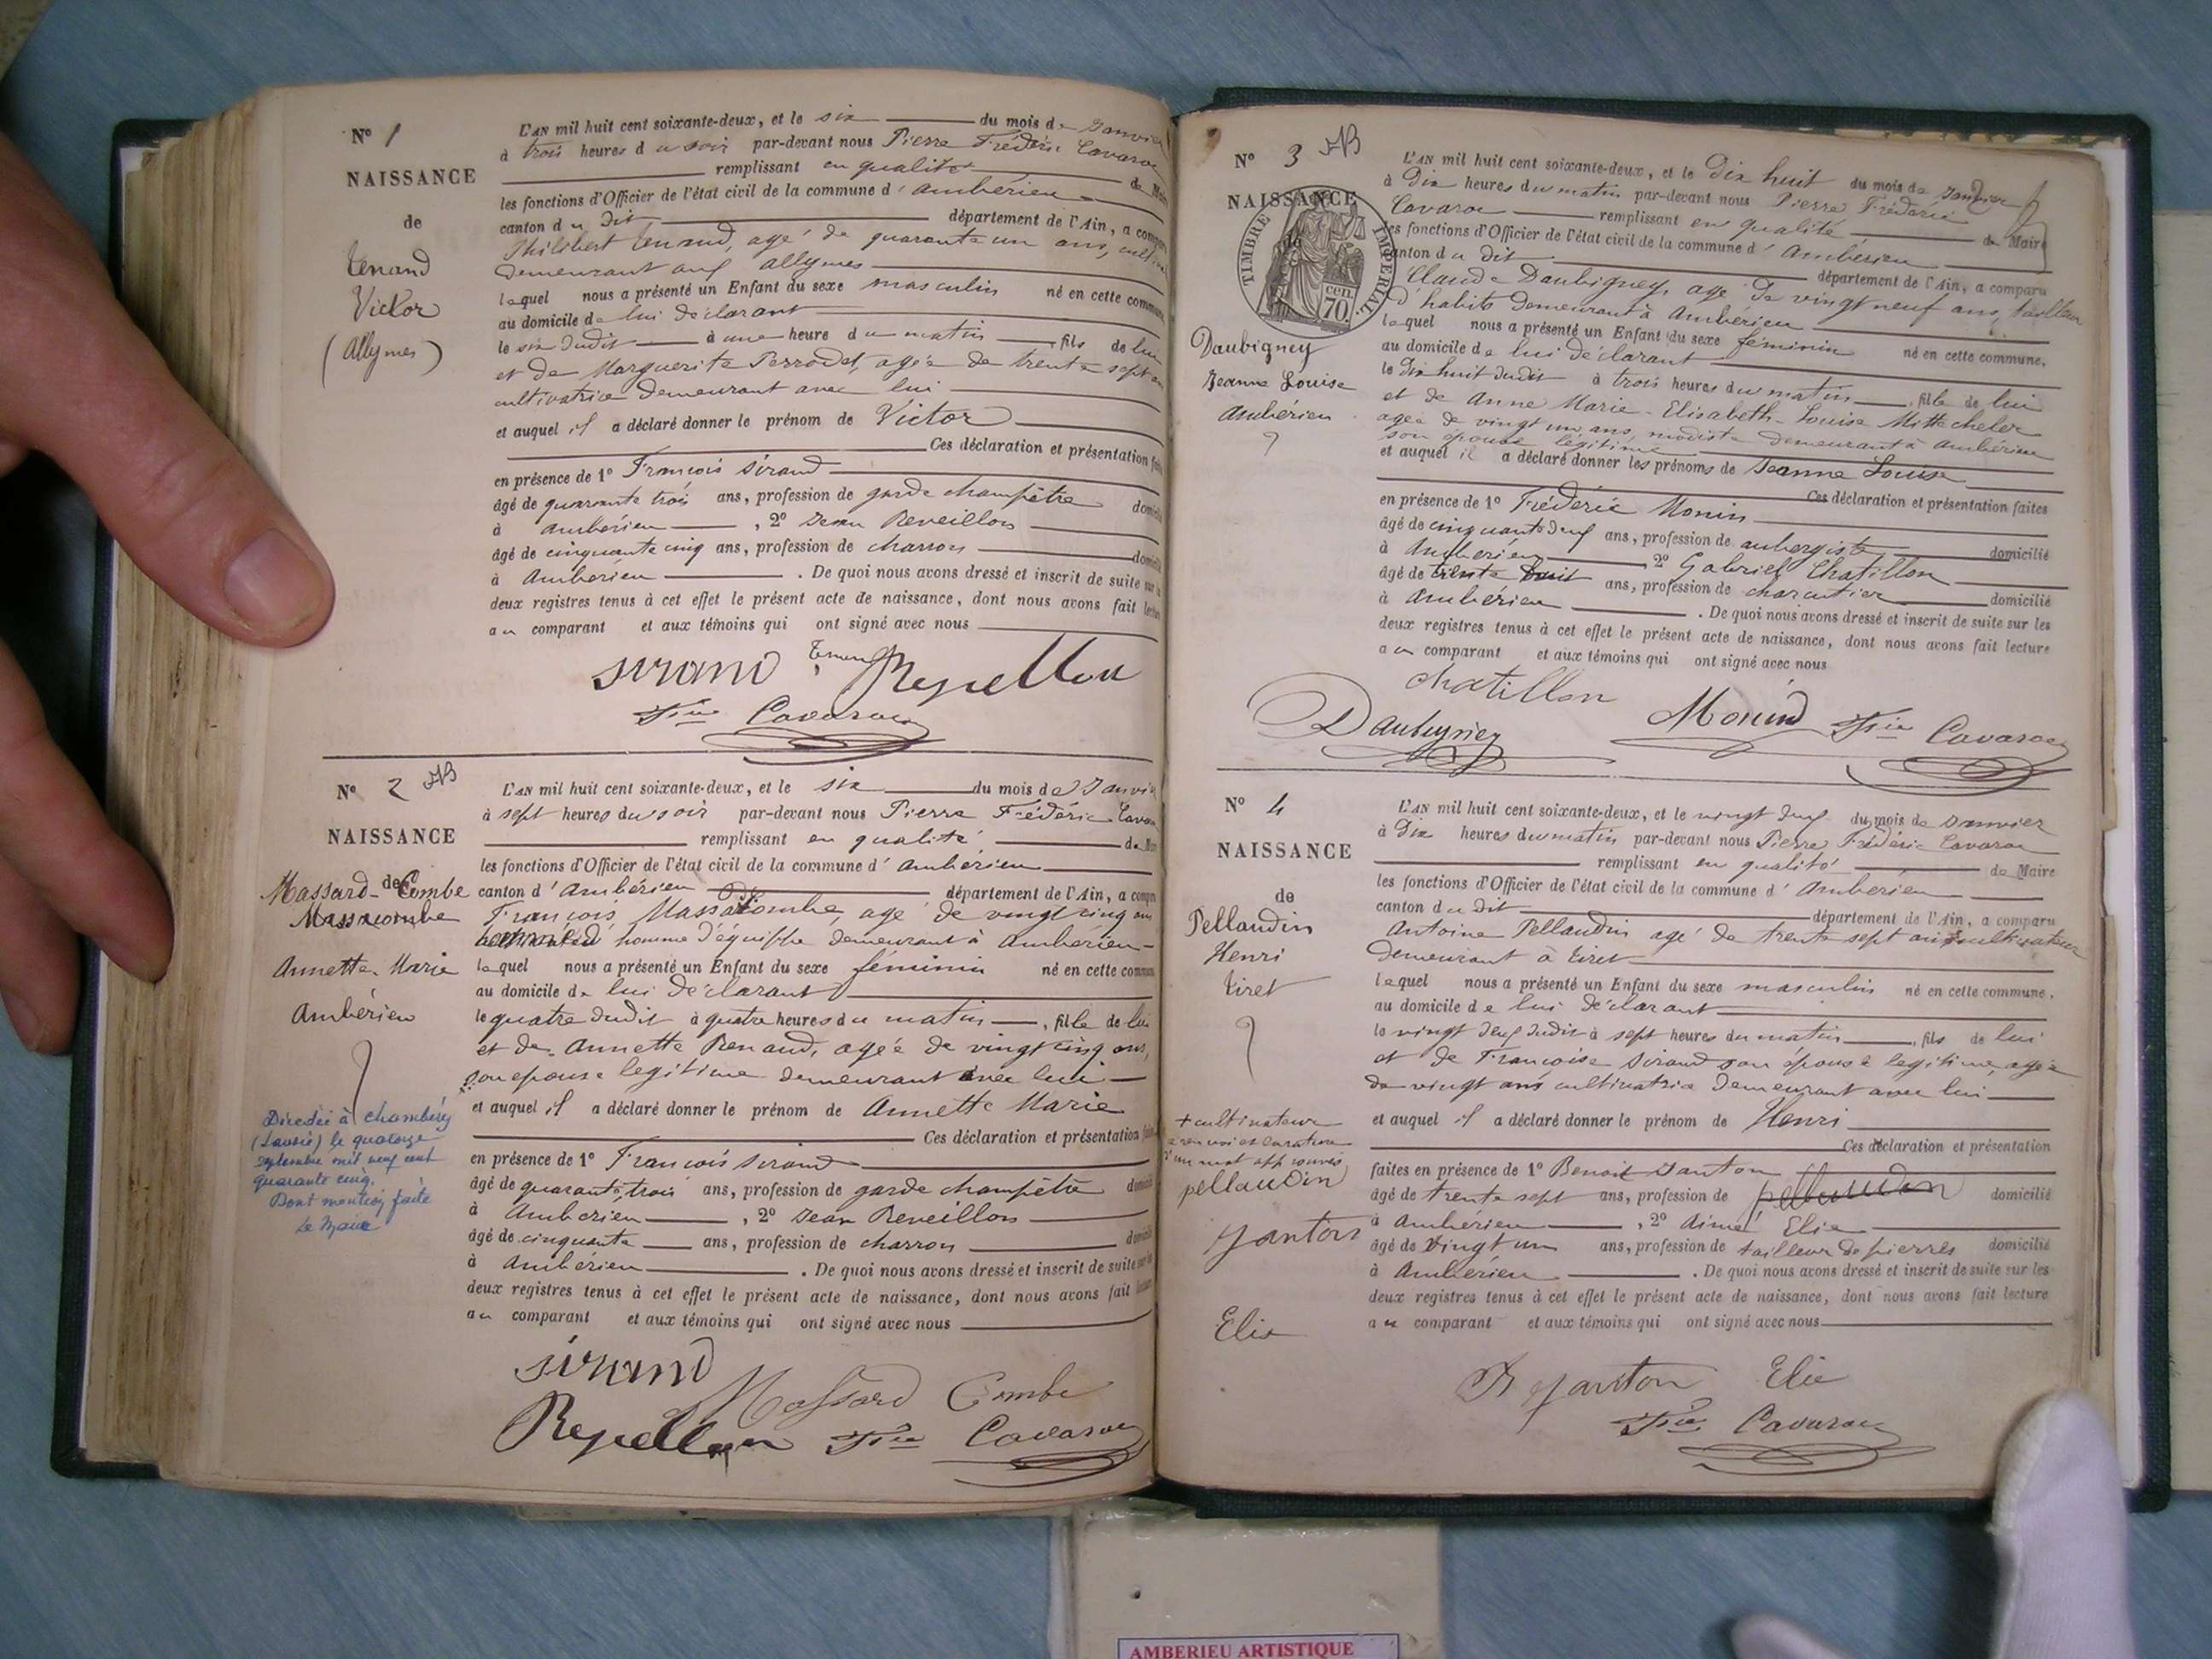 N° 1
NAISSANCE
de
Tenand
Victor
(Allymes)
L'AN mil huit cent soixante-deux, et le six du mois de Janvier
à trois heures du soir par-devant nous Pierre Frédéric Cavaroc
remplissant en qualité de Maire
les fonctions d'Officier de l'état civil de la commune d'Ambérieu
canton du dit département de l'Ain, a comparu
Philibert Tenand, agé de quarante un ans, cultiv
demeurant aux allymes
lequel nous a présenté un Enfant du sexe masculin né en cette commune,
au domicile de lui déclarant
le six dudit à une heure du matin, fils de lui
et de Marguerite Perrodet, agée de trente sept ans
cultivatrice demeurant avec lui
et auquel il a déclaré donner le prénom de Victor
Ces déclaration et présentation faites
en présence de 1° François Sirand
âgé de quarante trois ans, profession de garde champêtre domicilié
à Ambérieu, 2° Jean Reveillon
âgé de cinquante cinq ans, profession de charron domicilié
à Ambérieu. De quoi nous avons dressé et inscrit de suite sur les
deux registres tenus à cet effet le présent acte de naissance, dont nous avons fait lecture
au comparant et aux témoins qui ont signé avec nous
Sirand Tenand Repellon
Fric Cavaroc
N° 2
NAISSANCE
de
Massard-Combe
Massacombe
Annette-Marie
Ambérieu
Décédée à Chambéry
(Savoie) le quatorze
septembre mil neuf cent
quarante cinq.
Dont mention faite
Le Maire
L'AN mil huit cent soixante-deux, et le six du mois de Janvier
à sept heures du soir par-devant nous Pierre Frédéric Cavaroc
remplissant en qualité de Maire
les fonctions d'Officier de l'état civil de la commune d'Ambérieu
canton d'Ambérieu département de l'Ain, a comparu
François Massacombe, agé de vingt cinq ans
homme d'équipe demeurant à Ambérieu
lequel nous a présenté un Enfant du sexe féminin né en cette commune
au domicile de lui déclarant
le quatre dudit à quatre heures du matin, fille de lui
et de Annette Renaud, agée de vingt cinq ans,
son epouse legitime demeurant avec lui
et auquel il a déclaré donner le prénom de Annette Marie
Ces déclaration et présentation faites
en présence de 1° François Sirand
âgé de quarante trois ans, profession de garde champêtre domicilié
à Ambérieu, 2° Jean Reveillon
âgé de cinquante ans, profession de charron domicilié
à Ambérieu. De quoi nous avons dressé et inscrit de suite sur les
deux registres tenus à cet effet le présent acte de naissance, dont nous avons fait lecture
au comparant et aux témoins qui ont signé avec nous
Sirand
Massard Combe
Repellon Fric Cavaroc
N° 3
NAISSANCE
de
TIMBRE IMPERIAL
cen. 70.
Daubigney
Jeanne Louise
Ambérieu
L'AN mil huit cent soixante-deux, et le Dix huit du mois de Janvier
à Dix heures du matin par-devant nous Pierre Frédéric
Cavaroc remplissant en qualité de Maire
les fonctions d'Officier de l'état civil de la commune d'Ambérieu
canton du dit département de l'Ain, a comparu
Claude Daubigney, agé de vingt neuf ans, tailleur
d'habits demeurant à Ambérieu
lequel nous a présenté un Enfant du sexe féminin né en cette commune,
au domicile de lui déclarant
le Dix huit dudit à trois heures du matin, fille de lui
et de Anne Marie-Elisabeth-Louise Mittecheler
agée de vingt un ans, modiste demeurant à Ambérieu
son épouse légitime
et auquel il a déclaré donner les prénoms de Jeanne Louise
Ces déclaration et présentation faites
en présence de 1° Fréderic Monin
âgé de cinquante deux ans, profession de aubergiste domicilié
à Ambérieu 2° Gabriel Chatillon
âgé de trente huit ans, profession de charcutier domicilié
à Ambérieu. De quoi nous avons dressé et inscrit de suite sur les
deux registres tenus à cet effet le présent acte de naissance, dont nous avons fait lecture
au comparant et aux témoins qui ont signé avec nous
chatillon
Daubigney Monin Fric Cavaroc
N° 4
NAISSANCE
de
Pellaudin
Henri
Tiret
+ cultivateur
pellaudin
Janton
Elie
L'AN mil huit cent soixante-deux, et le vingt deux du mois de Janvier
à Dix heures du matin par-devant nous Pierre Frédéric Cavaroc
remplissant en qualité de Maire
les fonctions d'Officier de l'état civil de la commune d'Ambérieu
canton du dit département de l'Ain, a comparu
Antoine Pellaudin agé de trente sept ans + cultivateur
demeurant à Tiret
lequel nous a présenté un Enfant du sexe masculin né en cette commune,
au domicile de lui déclarant
le vingt deux dudit à sept heures du matin, fils de lui
et de Francoise Sirand son épouse legitime, agée
de vingt ans cultivatrice demeurant avec lui
et auquel il a déclaré donner le prénom de Henri
Ces déclaration et présentation
faites en présence de 1° Benoit Janton
âgé de trente sept ans, profession de pellaudin domicilié
à Ambérieu, 2° Aimé Elie
âgé de vingt un ans, profession de tailleur de pierres domicilié
à Ambérieu. De quoi nous avons dressé et inscrit de suite sur les
deux registres tenus à cet effet le présent acte de naissance, dont nous avons fait lecture
au comparant et aux témoins qui ont signé avec nous
B Janton Elie
Fric Cavaroc
AMBERIEU ARTISTIQUE